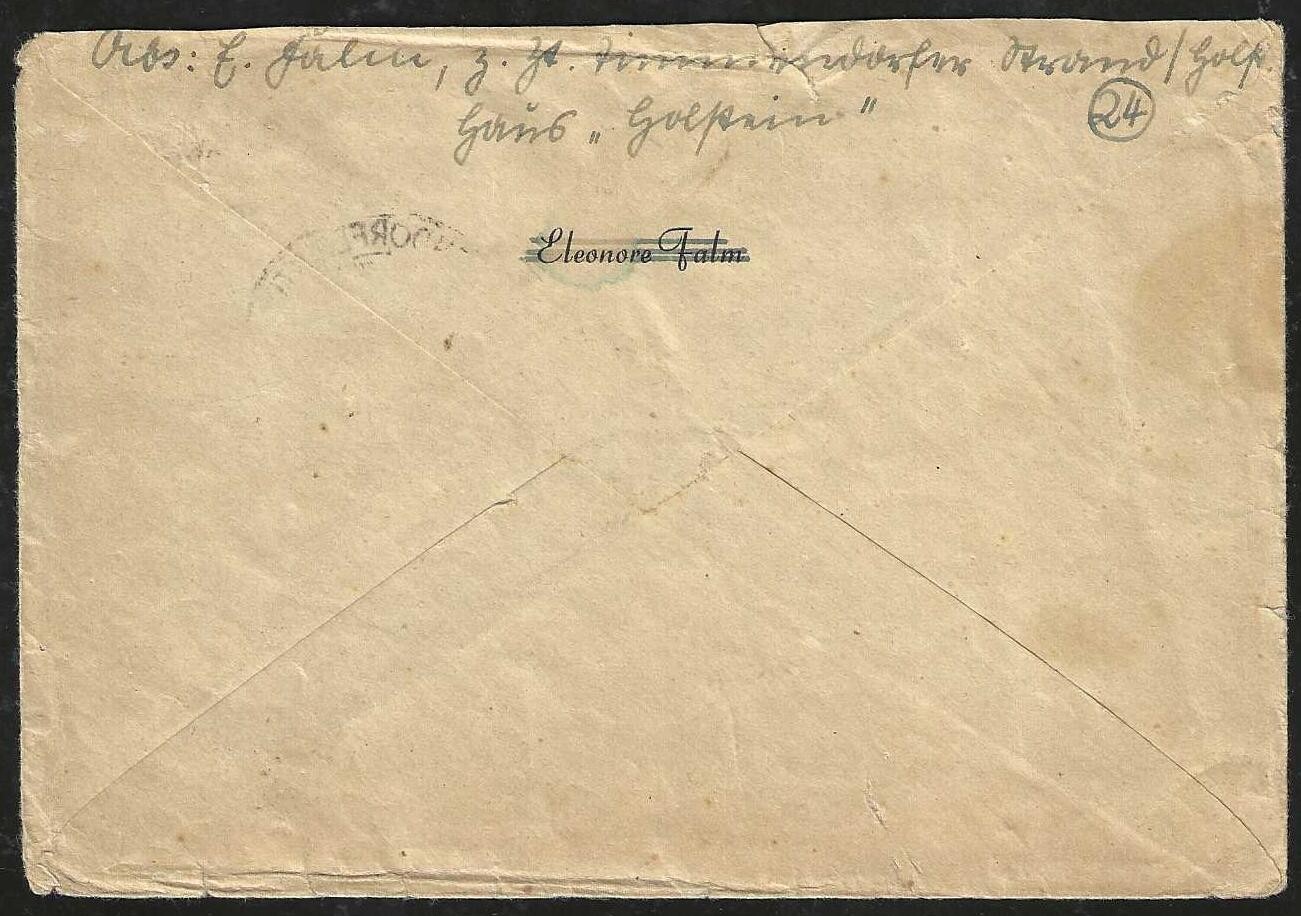 Abs: E. Falm, z. Zt. Timmendorfer Strand/Holst.
Haus „Holstein"
24
Eleonore Falm